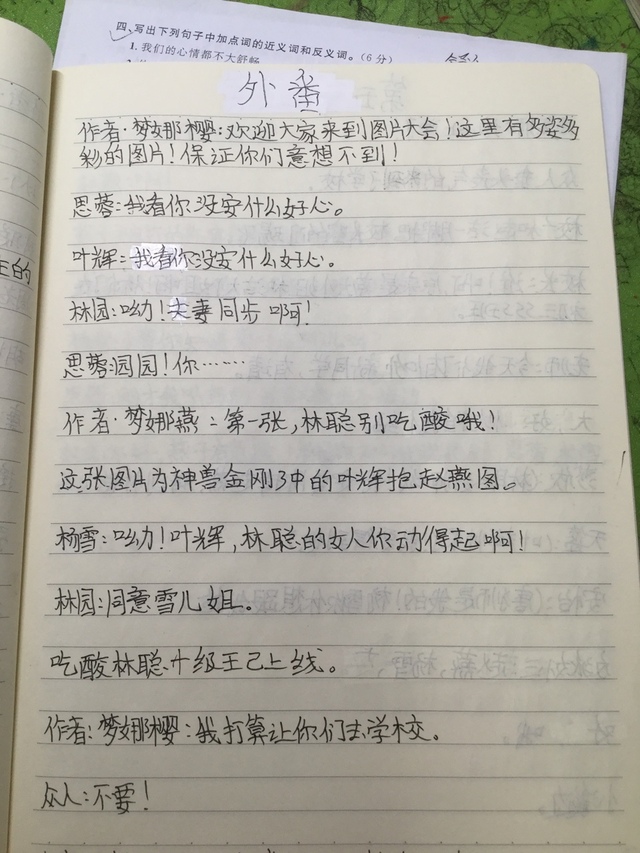 四、写出下列句子中加点词的近义词和反义词。(6分)
1. 我们的心情都不大舒畅
外番
作者·梦娜樱:欢迎大家来到图片大会!这里有多姿多
彩的图片!保证你们意想不到!
思蓉:我看你没安什么好心。
叶辉:我看你没安什么好心。
林园:呦!夫妻同步啊!
思蓉:园园!你……
作者·梦娜燕:第一张,林聪别吃酸哦!
这张图片为神兽金刚3中的叶辉抱赵燕图。
杨雪:呦!叶辉,林聪的女人你动得起啊!
林园:同意雪儿姐。
吃酸林聪升级王已上线。
作者:梦娜樱:我打算让你们去学校。
众人:不要!